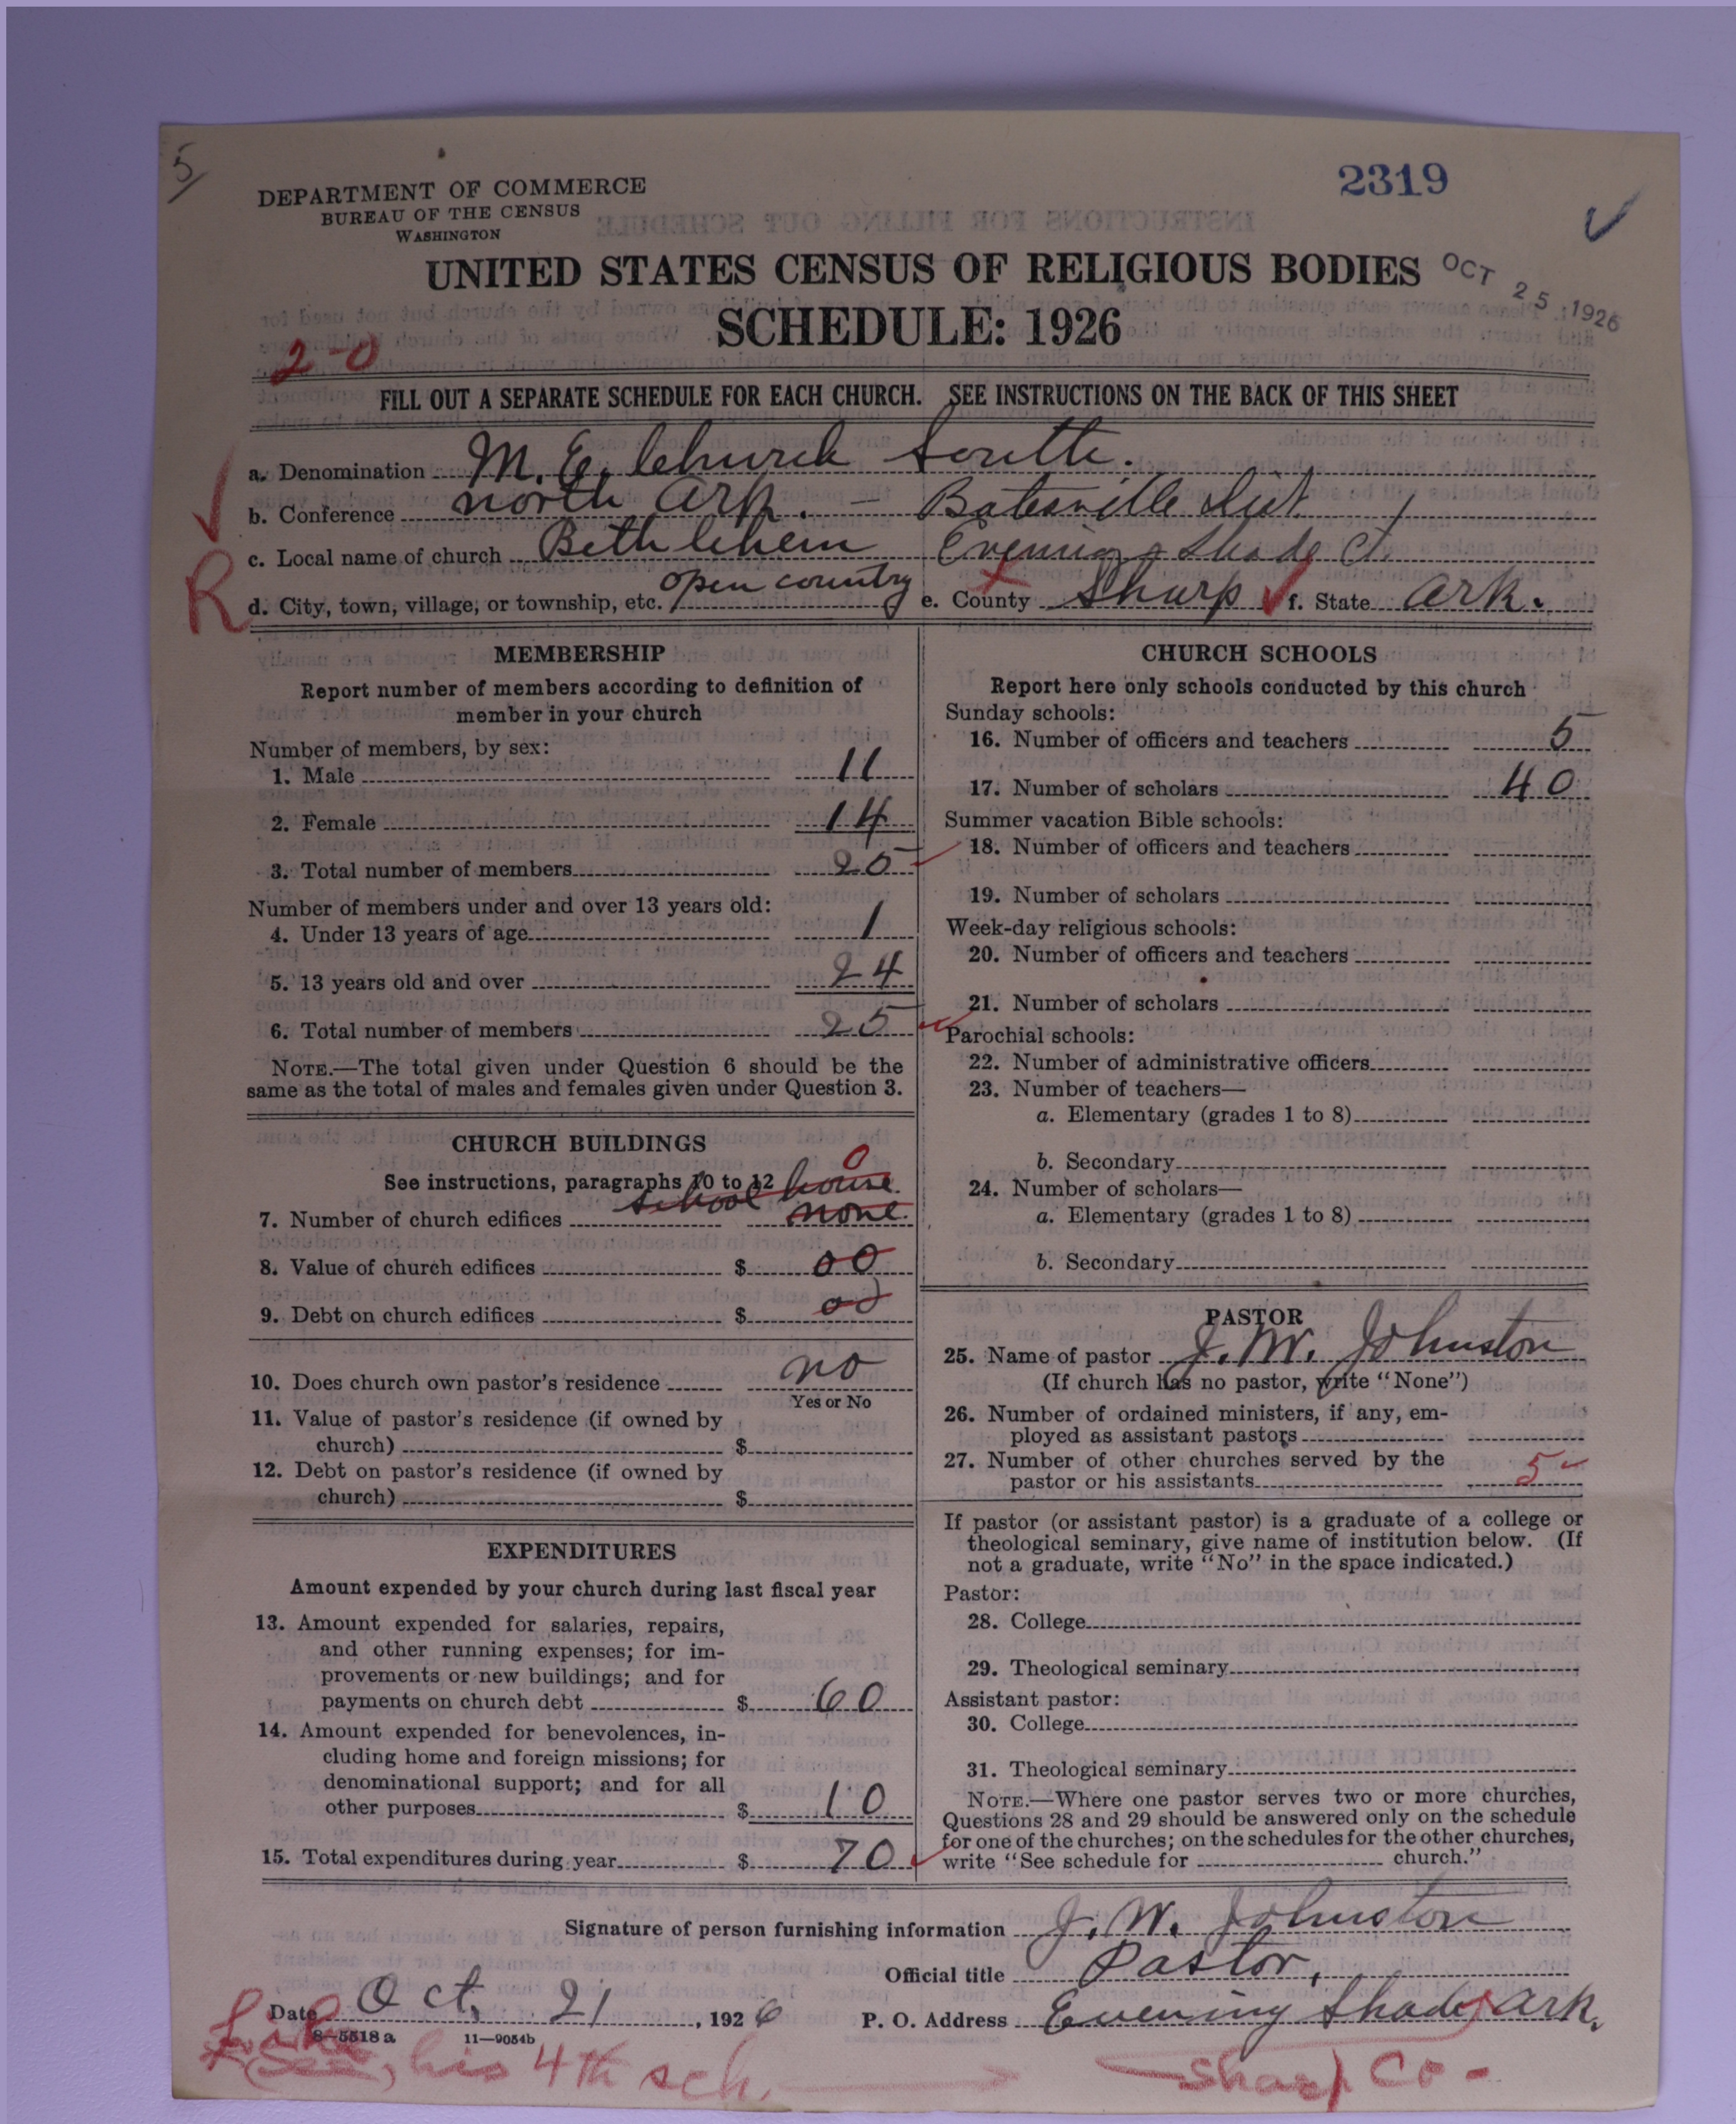 5
2319
DEPARTMENT OF COMMERCE
BUREAU OF THE CENSUS
WASHINGTON
UNITED STATES CENSUS OF RELIGIOUS BODIES
OCT 25 1926
SCHEDULE: 1926
2-0
FILL OUT A SEPARATE SCHEDULE FOR EACH CHURCH. SEE INSTRUCTIONS ON THE BACK OF THIS SHEET
a. Denomination M. E. Church South.
b. Conference north Ark. - Batesville Dist
c. Local name of church Bethlehem Evening Shade Ct.
R
d. City, town, village, or township, etc. open country e. County Sharp f. State Ark.
MEMBERSHIP
Report number of members according to definition of
member in your church
Number of members, by sex:
1. Male 11
2. Female 14
3. Total number of members 25
Number of members under and over 13 years old:
4. Under 13 years of age 1
5. 13 years old and over 24
6. Total number of members 25
NOTE.—The total given under Question 6 should be the
same as the total of males and females given under Question 3.
CHURCH BUILDINGS
See instructions, paragraphs 10 to 12
0
school house
7. Number of church edifices none
8. Value of church edifices $ 00
9. Debt on church edifices $ 00
10. Does church own pastor's residence no
Yes or No
11. Value of pastor's residence (if owned by
church) $
12. Debt on pastor's residence (if owned by
church) $
EXPENDITURES
Amount expended by your church during last fiscal year
13. Amount expended for salaries, repairs,
and other running expenses; for im-
provements or new buildings; and for
payments on church debt $ 60
14. Amount expended for benevolences, in-
cluding home and foreign missions; for
denominational support; and for all
other purposes $ 10
15. Total expenditures during year $ 70
CHURCH SCHOOLS
Report here only schools conducted by this church
Sunday schools:
16. Number of officers and teachers 5
17. Number of scholars 40
Summer vacation Bible schools:
18. Number of officers and teachers
19. Number of scholars
Week-day religious schools:
20. Number of officers and teachers
21. Number of scholars
Parochial schools:
22. Number of administrative officers
23. Number of teachers—
a. Elementary (grades 1 to 8)
b. Secondary
24. Number of scholars—
a. Elementary (grades 1 to 8)
b. Secondary
PASTOR
25. Name of pastor J. W. Johnston
(If church has no pastor, write "None")
26. Number of ordained ministers, if any, em-
ployed as assistant pastors
27. Number of other churches served by the
pastor or his assistants 5
If pastor (or assistant pastor) is a graduate of a college or
theological seminary, give name of institution below. (If
not a graduate, write "No" in the space indicated.)
Pastor:
28. College
29. Theological seminary
Assistant pastor:
30. College
31. Theological seminary
NOTE.—Where one pastor serves two or more churches,
Questions 28 and 29 should be answered only on the schedule
for one of the churches; on the schedules for the other churches,
write "See schedule for church."
Signature of person furnishing information J. W. Johnston
Official title Pastor,
Date Oct. 21, 1926 P. O. Address Evening Shade, Ark.
8—5518 a 11—9054b
his 4th sch. Sharp Co-